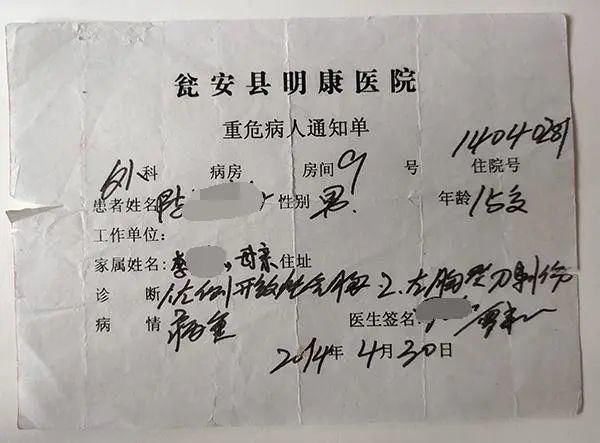 瓮安县明康医院
重危病人通知单
外科 病房 房间 9 号 住院号 14040281
患者姓名 性别 男. 年龄 15岁
工作单位:
家属姓名: 李 , 母亲 住址
诊断 左侧开放性气胸 2. 左胸壁刀刺伤
病情 病重 医生签名
2014年4月30日